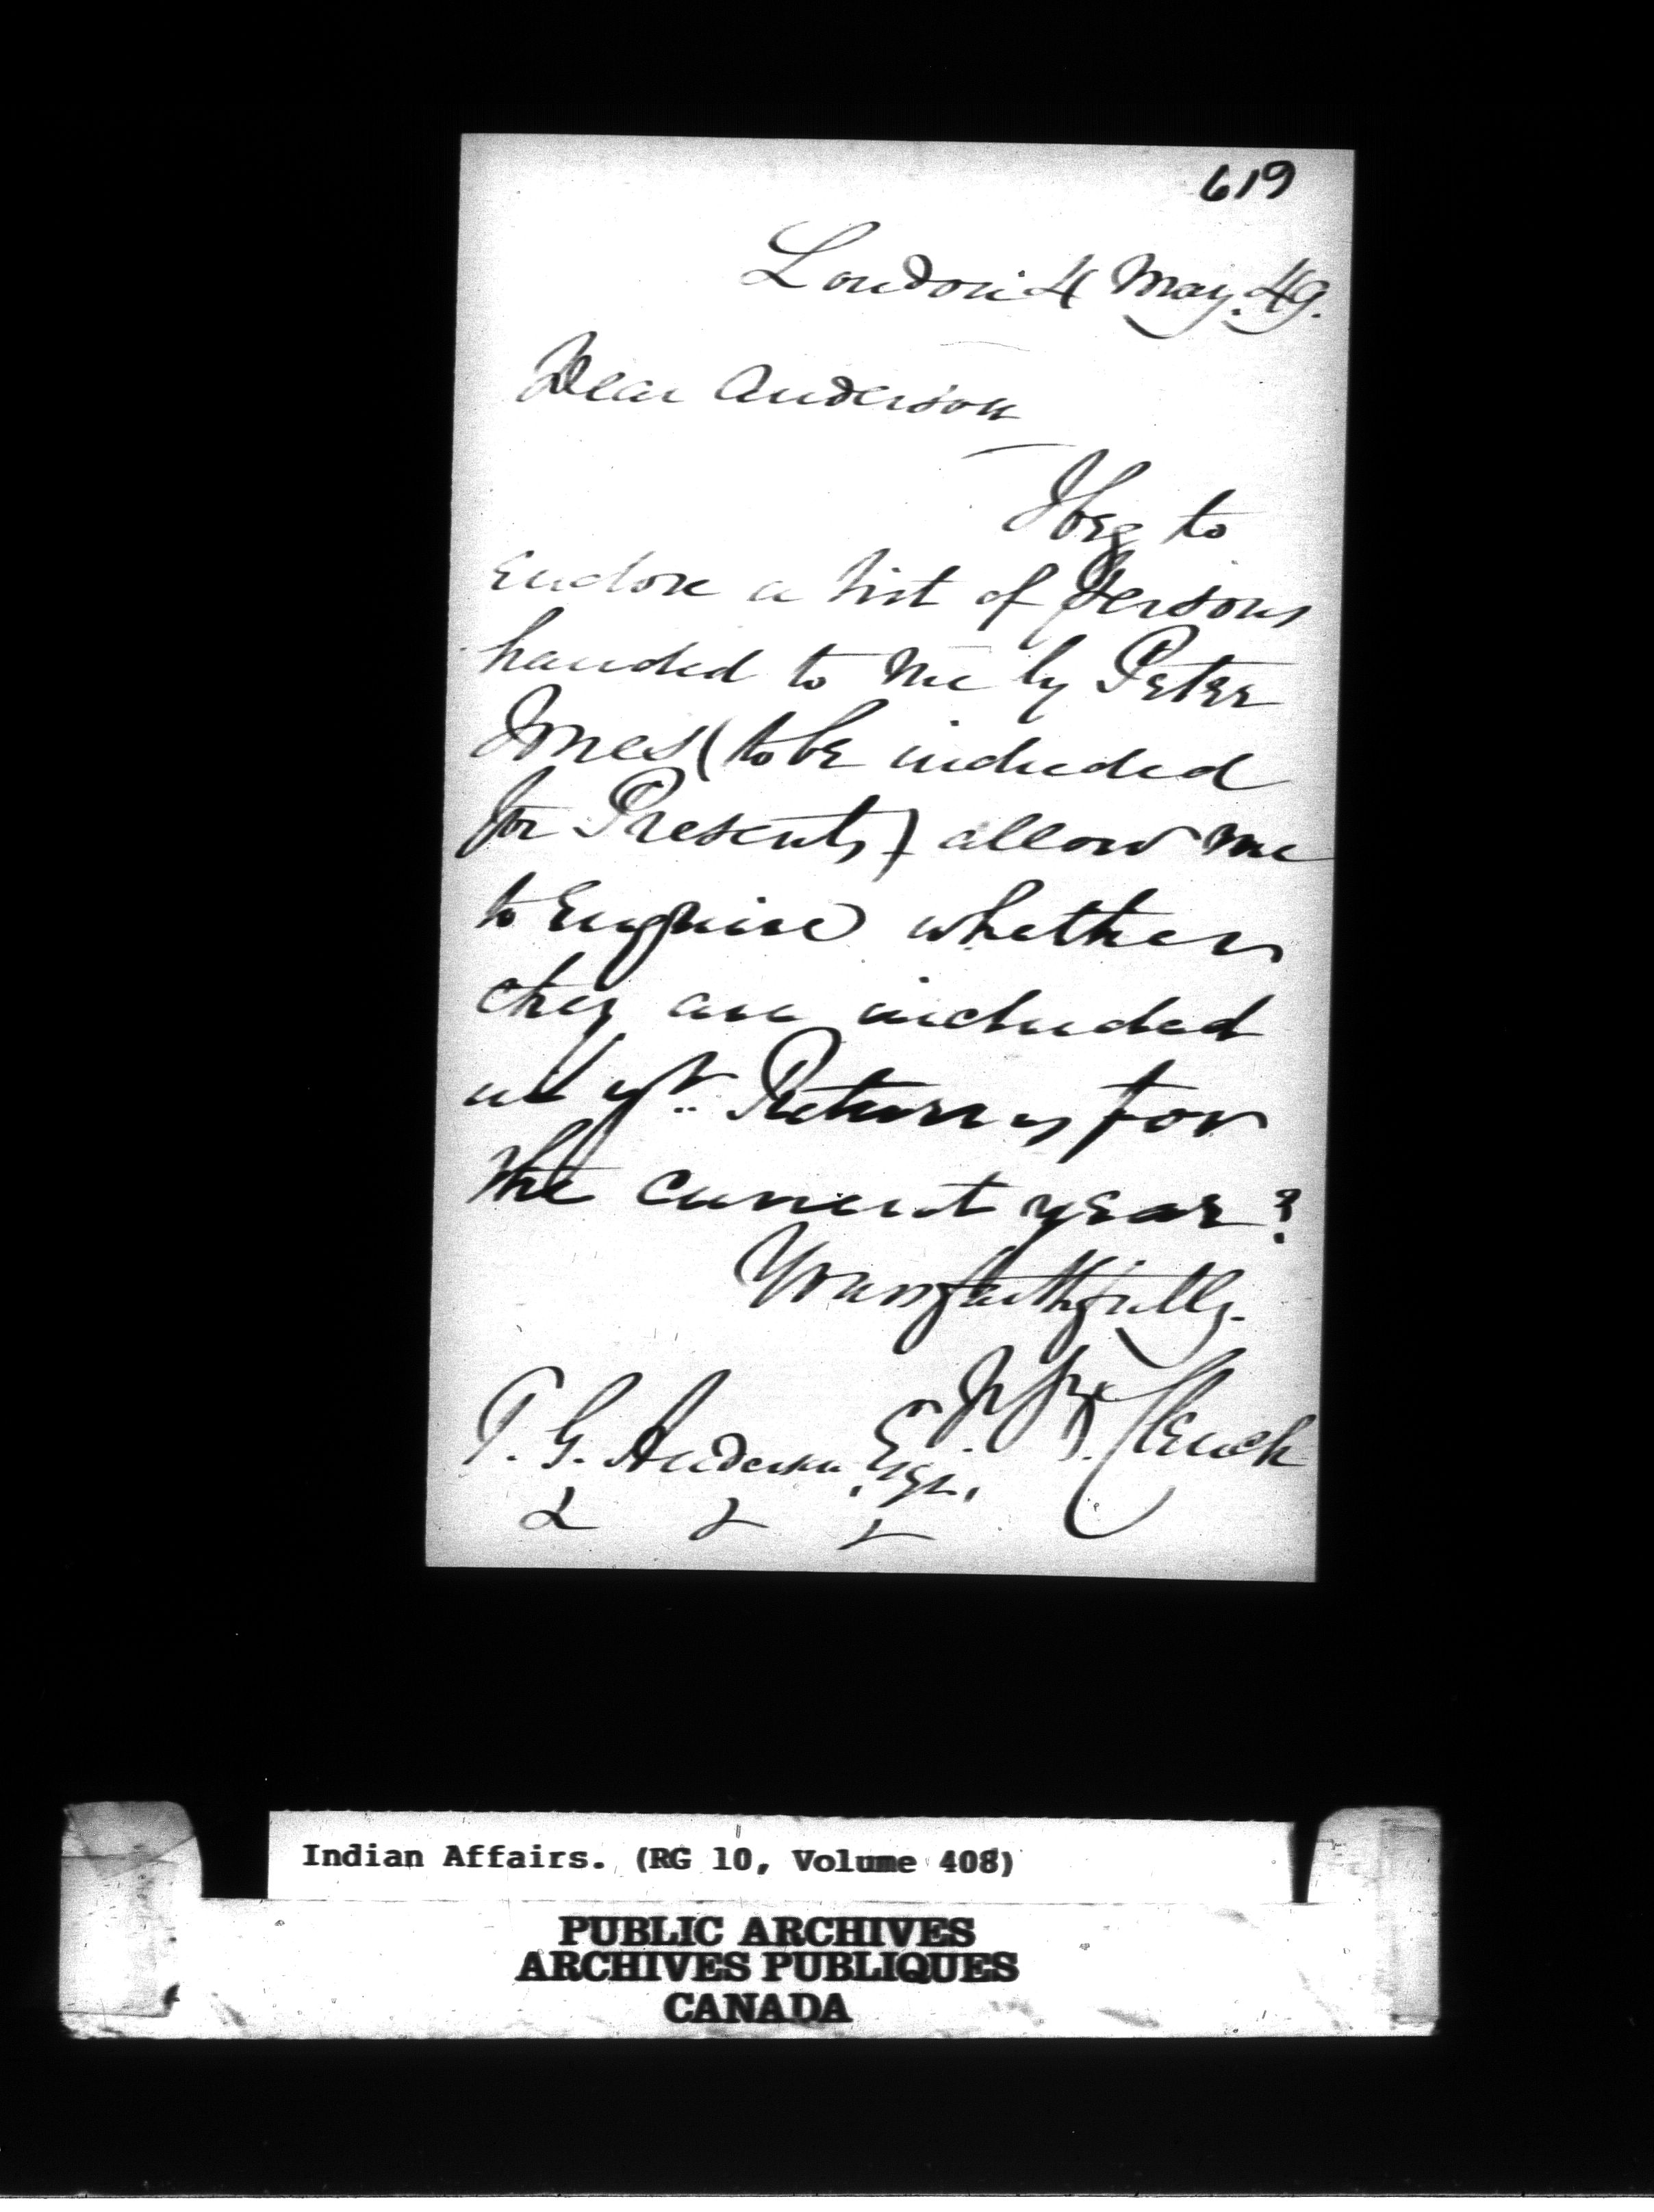 619
London 4 May. 49.
Dear Anderson
I beg to
Enclose a list of Persons
handed to me by Peter
Jones (to be included
for Presents) allow me
to Enquire whether
they are included
in yr. Returns for
the current year?
Yours faithfully.
J B Clench
T. G. Anderson, Esqr.,
& & &
Indian Affairs. (RG 10, Volume 408)
PUBLIC ARCHIVES
ARCHIVES PUBLIQUES
CANADA